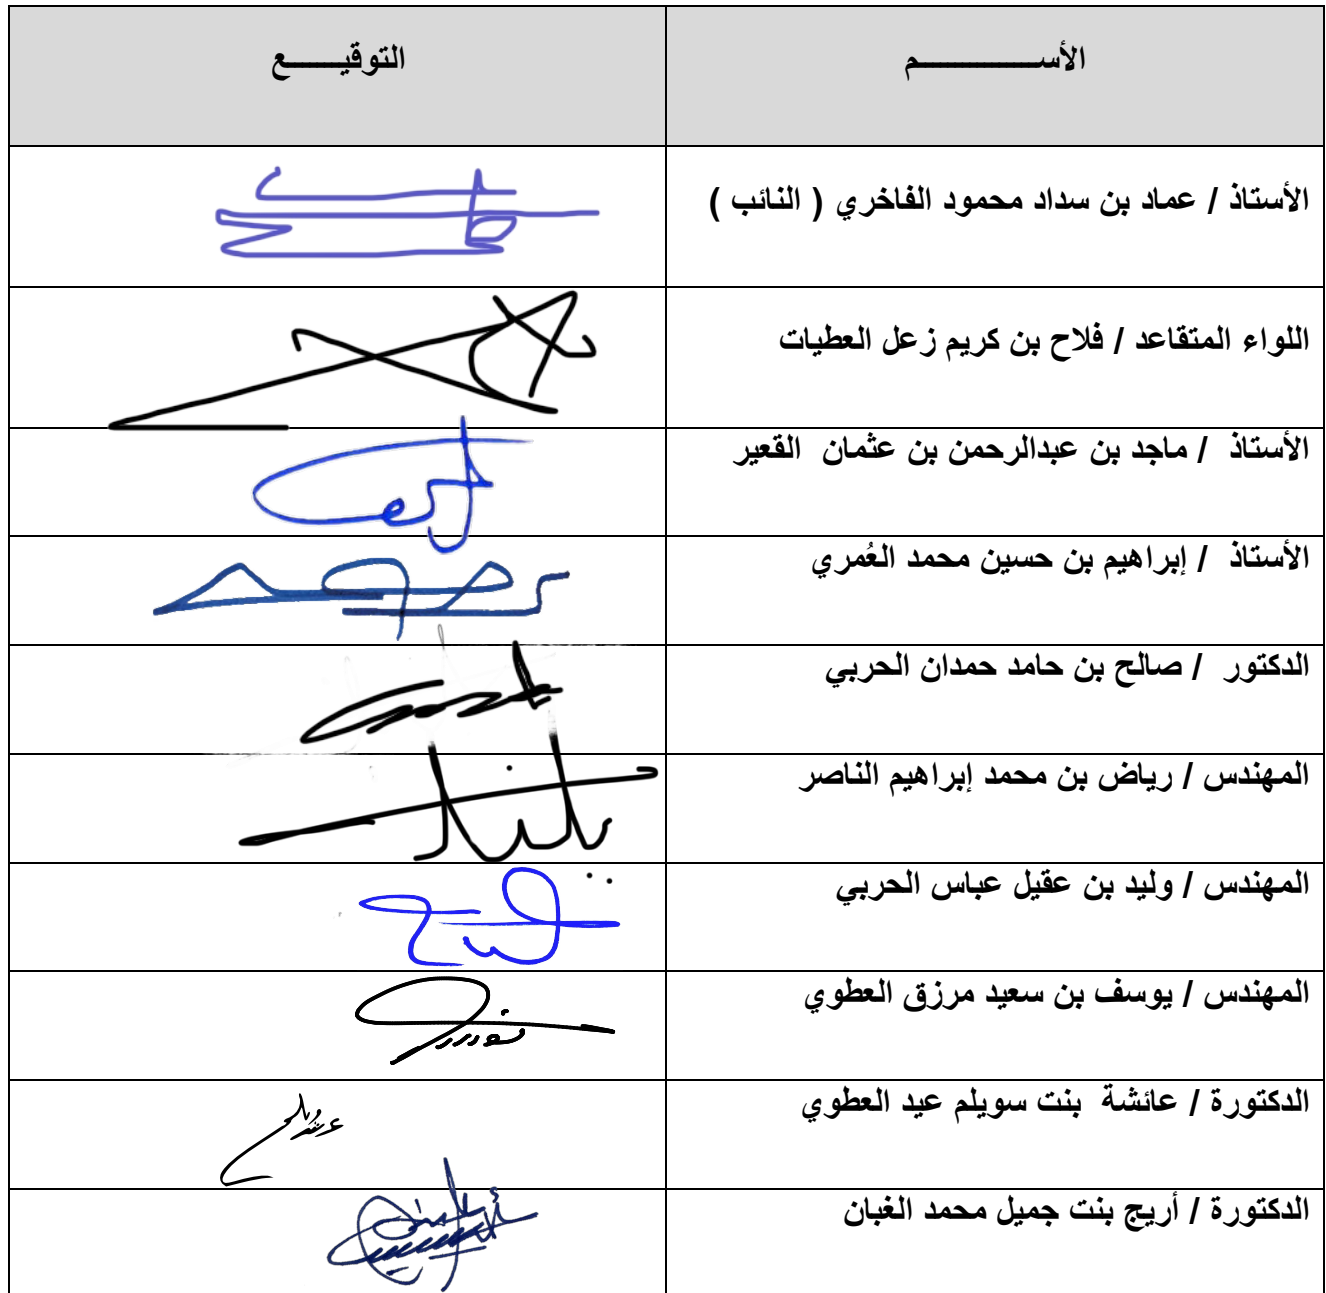 الأســــــــــــم
التوقيـــــــع
الأستاذ / عماد بن سداد محمود الفاخري ( النائب )
اللواء المتقاعد / فلاح بن كريم زعل العطيات
الأستاذ / ماجد بن عبدالرحمن بن عثمان القعير
الأستاذ / إبراهيم بن حسين محمد العُمري
الدكتور / صالح بن حامد حمدان الحربي
المهندس / رياض بن محمد إبراهيم الناصر
المهندس / وليد بن عقيل عباس الحربي
المهندس / يوسف بن سعيد مرزق العطوي
الدكتورة / عائشة بنت سويلم عيد العطوي
الدكتورة / أريج بنت جميل محمد الغبان